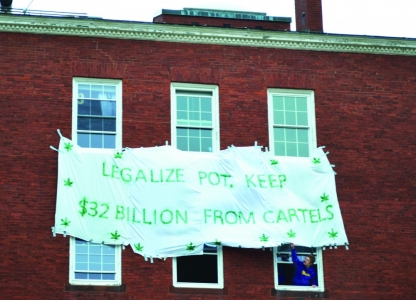 LEGALIZE POT. KEEP
$32 BILLION FROM CARTELS